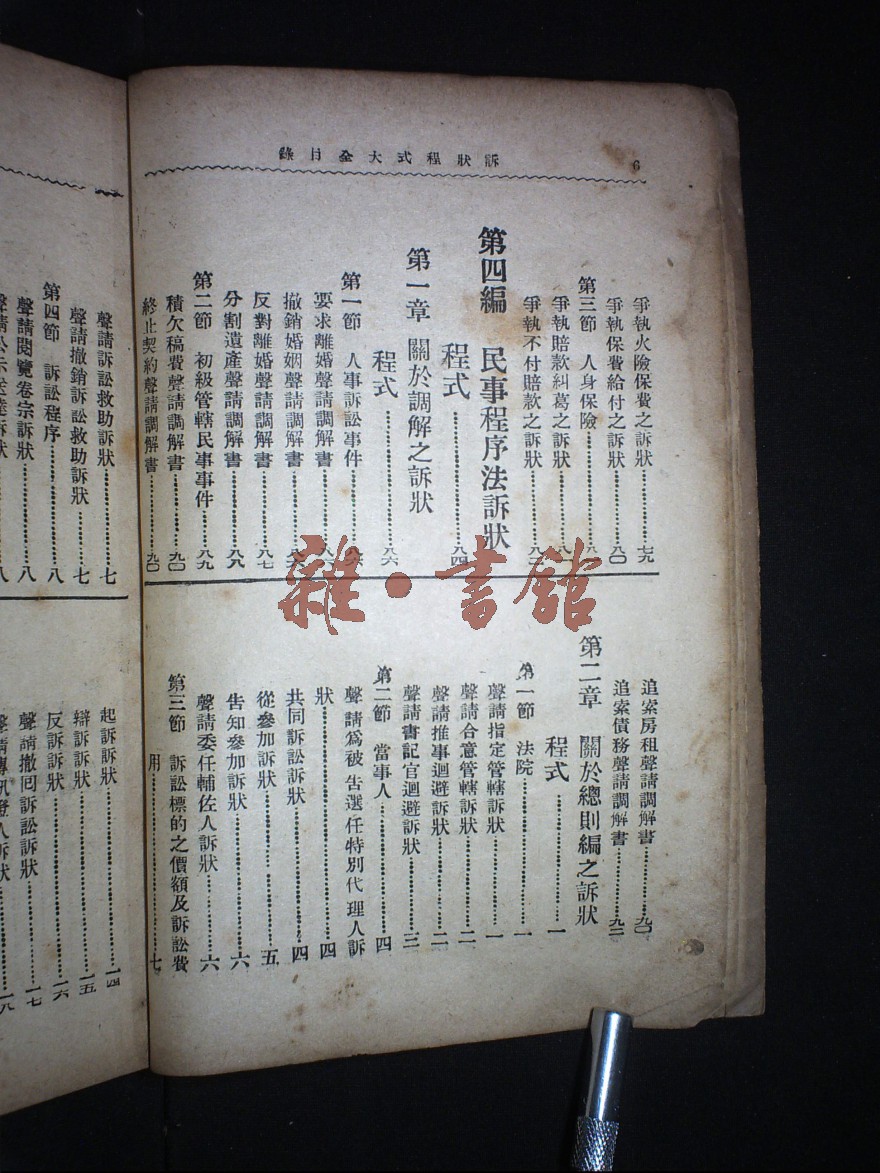 訴狀程式大全目錄
6
爭執火險保費之訴狀……七九
爭執保費給付之訴狀……八〇
第三節 人身保險
爭執賠款糾葛之訴狀
爭執不付賠款之訴狀
第四編 民事程序法訴狀
程式……八四
第一章 關於調解之訴狀
程式……八六
第一節 人事訴訟事件
要求離婚聲請調解書
撤銷婚姻聲請調解書
反對離婚聲請調解書……八七
分割遺產聲請調解書……八八
第二節 初級管轄民事事件……八九
積欠稿費聲請調解書……九〇
終止契約聲請調解書……九〇
追索房租聲請調解書
追索債務聲請調解書
第二章 關於總則編之訴狀
程式……一
第一節 法院……一
聲請指定管轄訴狀……一
聲請合意管轄訴狀……二
聲請推事迴避訴狀……二
聲請書記官迴避訴狀……三
第二節 當事人……四
聲請為被告選任特別代理人訴
狀……四
共同訴訟訴狀……四
從參加訴狀……五
告知參加訴狀……六
聲請委任輔佐人訴狀……六
第三節 訴訟標的之價額及訴訟費
用……七
聲請訴訟救助訴狀……七
聲請撤銷訴訟救助訴狀……七
第四節 訴訟程序……八
聲請閱覽卷宗訴狀……八
起訴訴狀……一四
辯訴訴狀……一五
反訴訴狀……一六
聲請撤回訴訟訴狀……一七
雜·書館